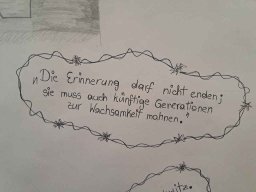 „Die Erinnerung darf nicht enden;
sie muss auch künftige Generationen
zur Wachsamkeit mahnen."